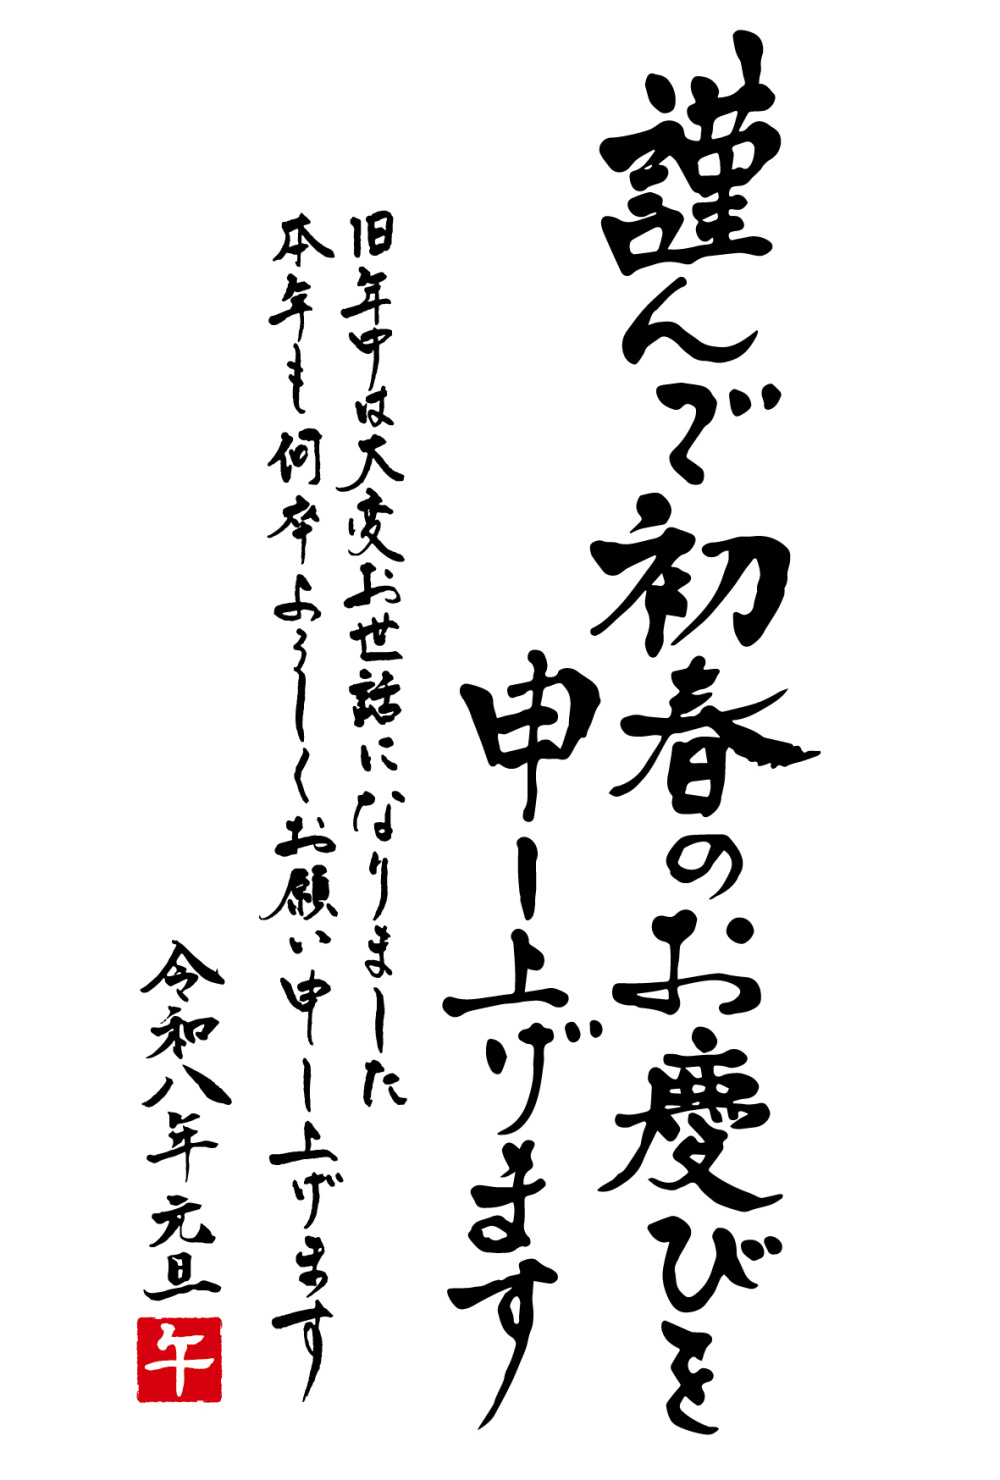 謹んで初春のお慶びを
申し上げます
旧年中は大変お世話になりました
本年も何卒よろしくお願い申し上げます
令和八年 元旦
午